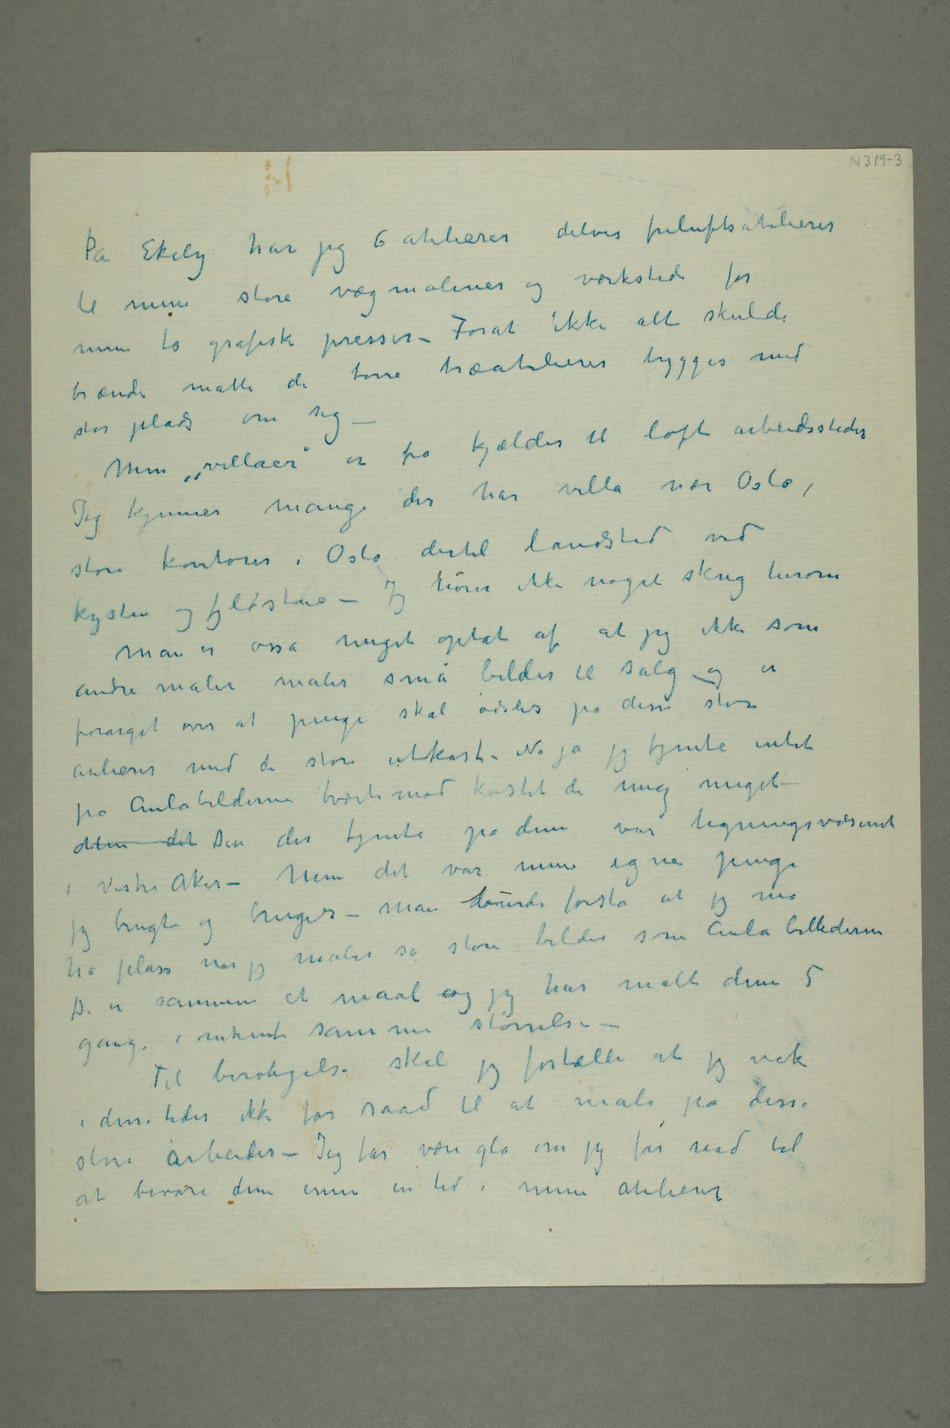 N319-3
På Ekely har jeg 6 atelierer delvis friluftsatelierer
til mine store vægmalerier og værksteder for
mine to grafiske presser – Forat ikke alt skulde
brænde måtte de tørre træatelierer bygges med
stor plads om sig –
Mine „villaer" er fra kjælder til loft arbeidssteder
Jeg kjenner mange der har villa nær Oslo,
store kontorer i Oslo dertil landsted ved
kysten og fjeldstue – Jeg hører ikke noget skrig herom
Man er osså meget optat af at jeg ikke som
andre maler maler små billder til salg – og er
forarget over at penge skal ødsles på disse store
atelierer med de store utkast – Na ja jeg tjente intet
på Aulabilderne tvært imod kostet de meg meget –
Men det Den der tjente på dem var ligningsvæsenet
i Vestre Aker – Men det var mine egne penge
jeg brugte og bruger – Man burde forstå at jeg må
ha plass når jeg maler så store bilder som Aulabillederne
De er sammen et maal og jeg har malt dem 5
gange i omtrent samme størrelse –
Til beroligelse skal jeg fortælle at jeg nok
i disse tider ikke får raad til at male på disse
store arbeider – Jeg får være gla om jeg får raad til
at bevare dem ennu en tid i mine atelierer